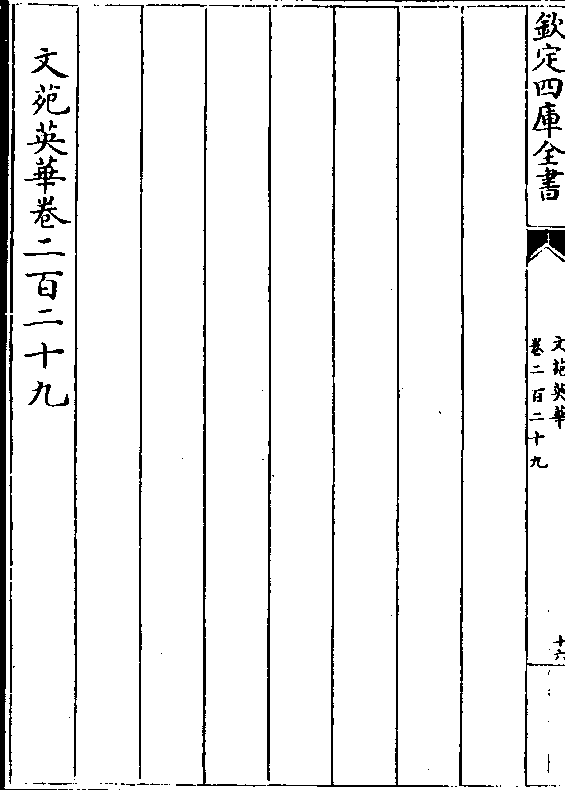 欽定四庫全書
文苑英華
卷二百二十九
十六
文苑英華卷二百二十九